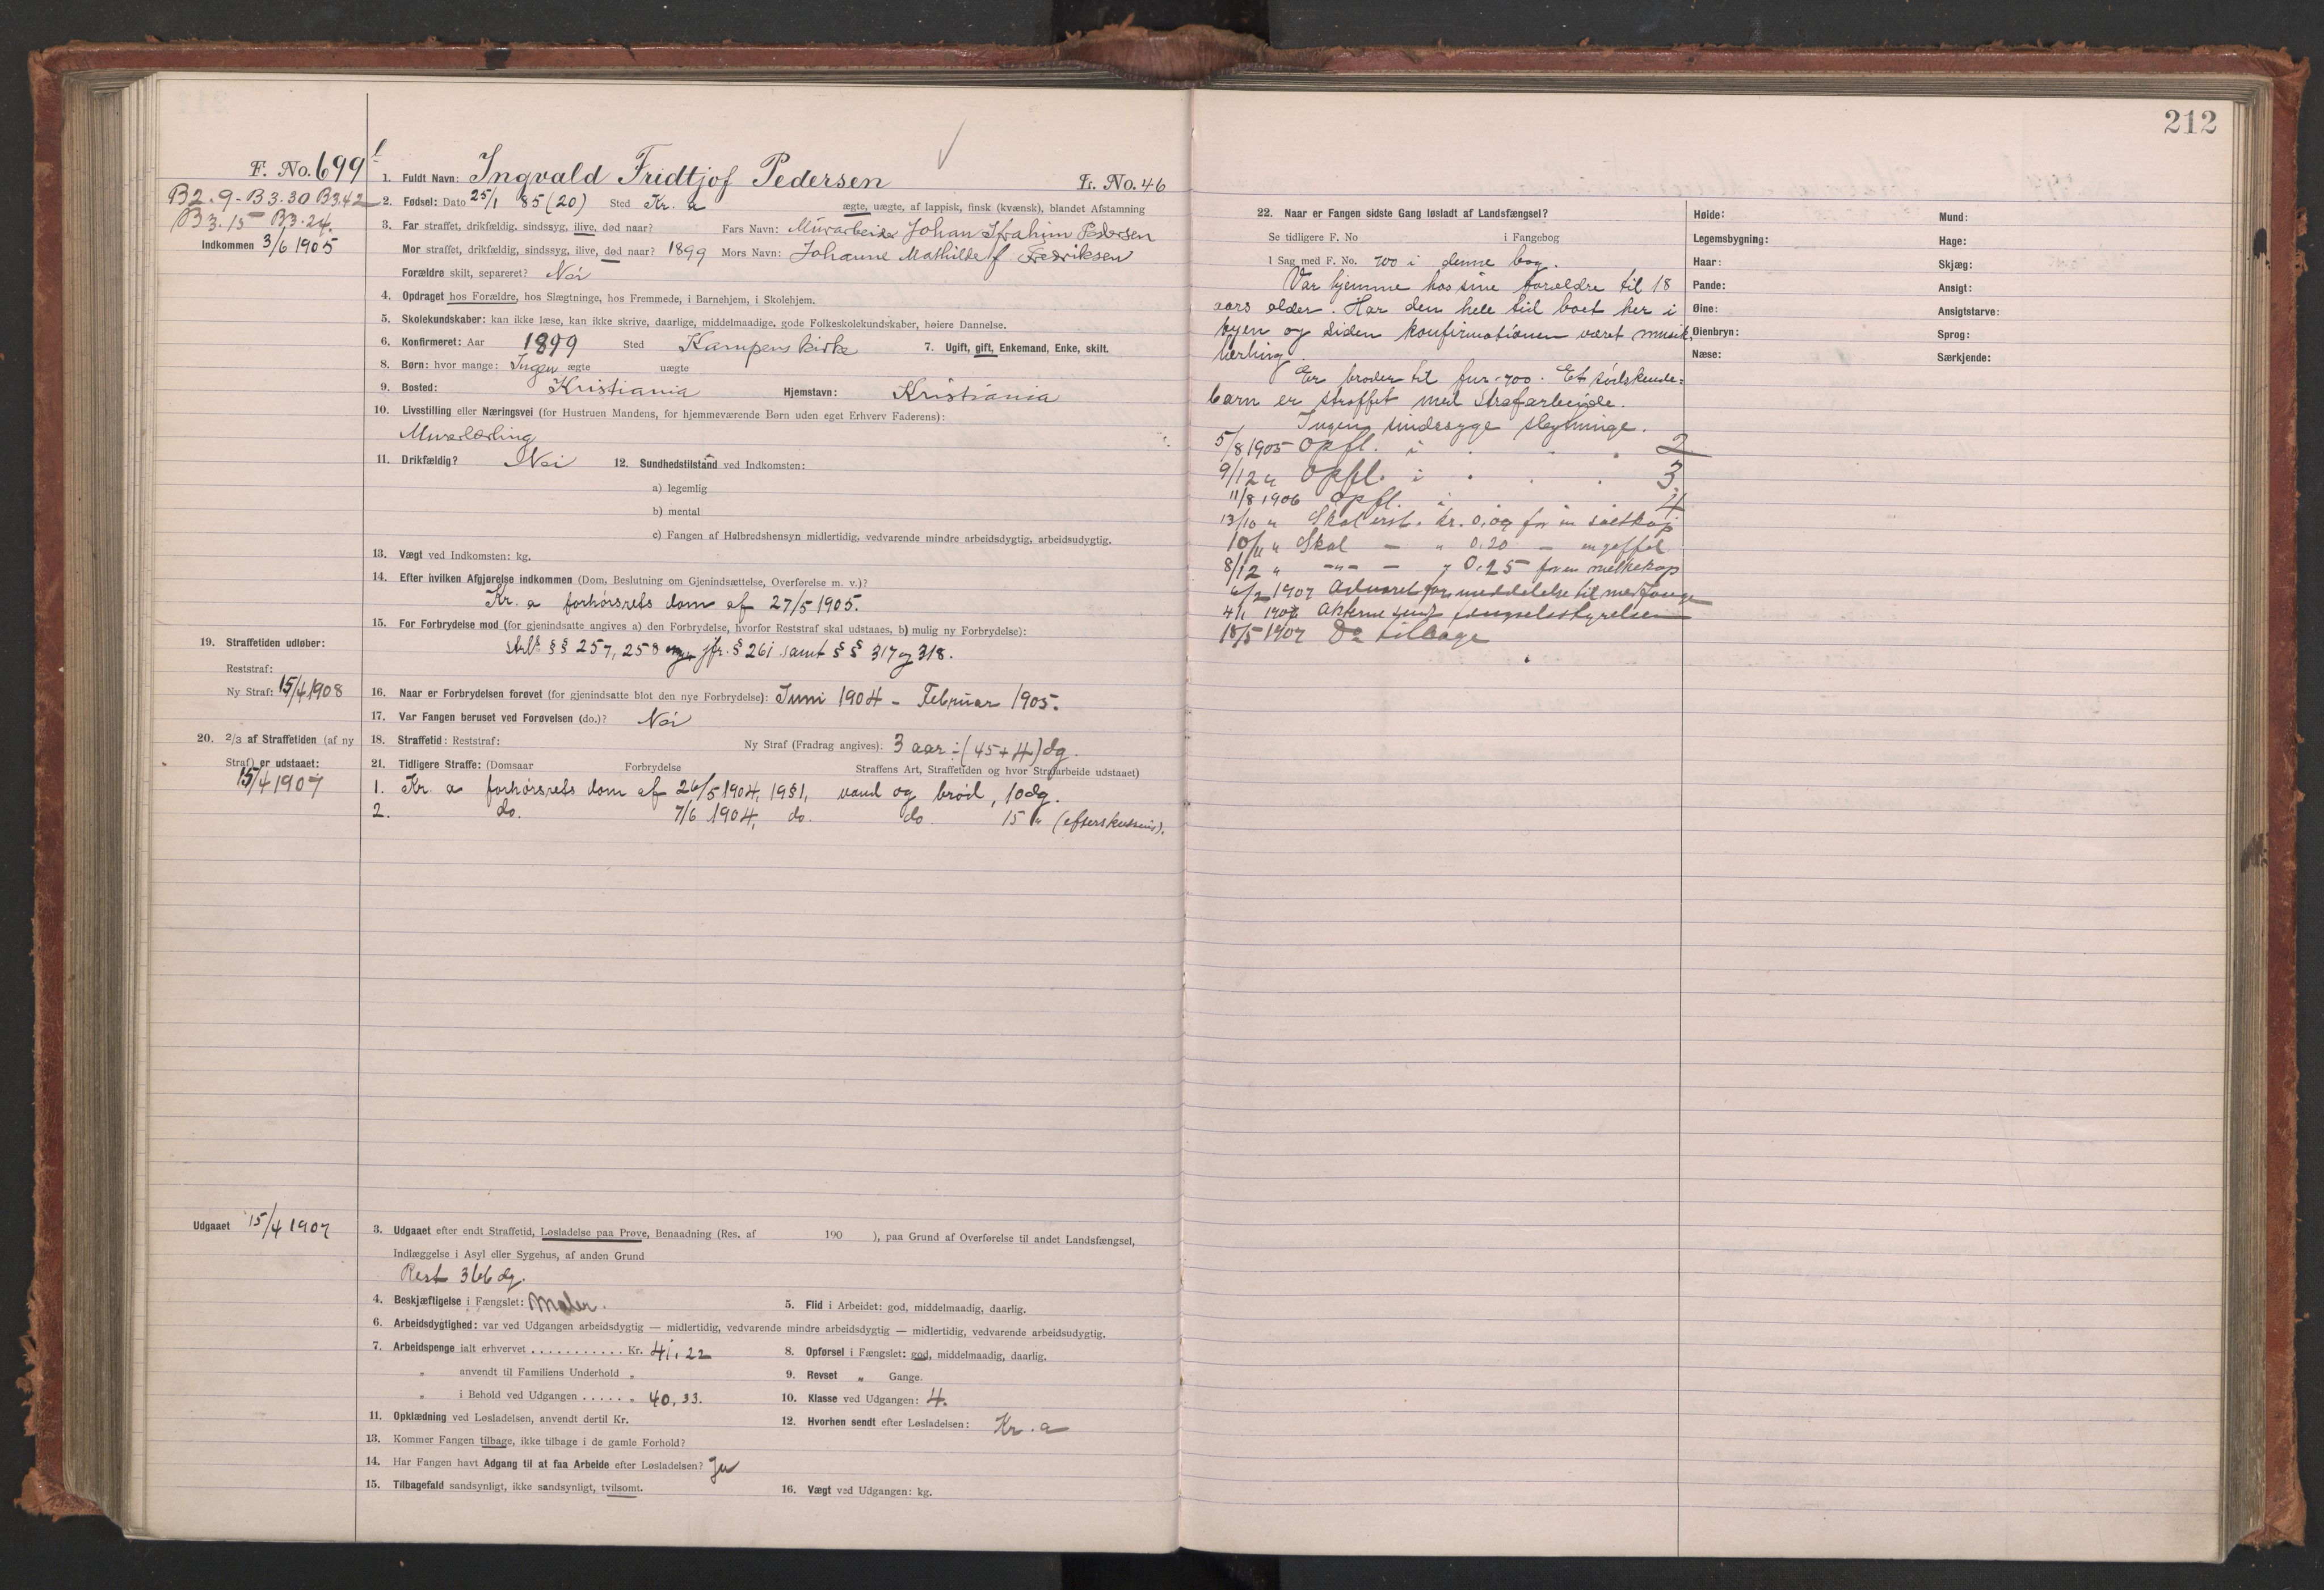 212
F. No. 699
1. Fuldt Navn: Ingvald Fridtjof Pedersen
Fr. No. 46
B2.9 - B3.30 B3.42
B3.15 B3.24.
Indkommen 3/6 1905
2. Fødsel: Dato 25/1 85 (20) Sted Kr.a ægte, uægte, af lappisk, finsk (kvænsk), blandet Afstamning
3. Far straffet, drikfældig, sindssyg, ilive, død naar? Fars Navn: Murarbeider Johan Pedersen
Mor straffet, drikfældig, sindssyg, ilive, død naar? 1899 Mors Navn: Johanne Mathilde f Fredriksen
Forældre skilt, separeret? Nei
4. Opdraget hos Forældre, hos Slægtninge, hos Fremmede, i Barnehjem, i Skolehjem.
5. Skolekundskaber: kan ikke læse, kan ikke skrive, daarlige, middelmaadige, gode Folkeskolekundskaber, høiere Dannelse.
6. Konfirmeret: Aar 1899 Sted Kampens kirke 7. Ugift, gift, Enkemand, Enke, skilt.
8. Børn: hvor mange: Ingen ægte uægte
9. Bosted: Kristiania Hjemstavn: Kristiania
10. Livsstilling eller Næringsvei (for Hustruen Mandens, for hjemmeværende Børn uden eget Erhverv Faderens):
Murerlærling
11. Drikfældig? Nei 12. Sundhedstilstand ved Indkomsten:
a) legemlig
b) mental
c) Fangen af Helbredshensyn midlertidig, vedvarende mindre arbeidsdygtig, arbeidsudygtig.
13. Vægt ved Indkomsten: kg.
14. Efter hvilken Afgjørelse indkommen (Dom, Beslutning om Gjenindsættelse, Overførelse m. v.)?
Kr.a forhørsrets dom af 27/5 1905.
15. For Forbrydelse mod (for gjenindsatte angives a) den Forbrydelse, hvorfor Reststraf skal udstaaes, b) mulig ny Forbrydelse):
§§ 257, 258 jfr. § 261 samt §§ 317 og 318.
19. Straffetiden udløber:
Reststraf:
Ny Straf: 15/4 1908
16. Naar er Forbrydelsen forøvet (for gjenindsatte blot den nye Forbrydelse): Juni 1904 - Februar 1905.
17. Var Fangen beruset ved Forøvelsen (do.)? Nei
20. 2/3 af Straffetiden (af ny
Straf) er udstaaet:
15/4 1907
18. Straffetid: Reststraf: Ny Straf (Fradrag angives): 3 aar ÷ (45+4) dg.
21. Tidligere Straffe: (Domsaar Forbrydelse Straffens Art, Straffetiden og hvor Strafarbeide udstaaet)
1. Kr.a forhørsrets dom af 26/5 1904, 19§1, vand og brød, 10 dg.
2. do. 7/6 1904, do. do. 15 "
Udgaaet 15/4 1907
3. Udgaaet efter endt Straffetid, Løsladelse paa Prøve, Benaadning (Res. af 190 ), paa Grund af Overførelse til andet Landsfængsel,
Indlæggelse i Asyl eller Sygehus, af anden Grund
Rest 366 dg.
4. Beskjæftigelse i Fængslet: Maler. 5. Flid i Arbeidet: god, middelmaadig, daarlig.
6. Arbeidsdygtighed: var ved Udgangen arbeidsdygtig — midlertidig, vedvarende mindre arbeidsdygtig — midlertidig, vedvarende arbeidsudygtig.
7. Arbeidspenge ialt erhvervet . . . . . . . . . . . Kr. 41,22 8. Opførsel i Fængslet: god, middelmaadig, daarlig.
" anvendt til Familiens Underhold " 9. Revset " Gange.
" i Behold ved Udgangen . . . . . " 40,33. 10. Klasse ved Udgangen: 4.
11. Opklædning ved Løsladelsen, anvendt dertil Kr. 12. Hvorhen sendt efter Løsladelsen: Kr.a
13. Kommer Fangen tilbage, ikke tilbage i de gamle Forhold?
14. Har Fangen havt Adgang til at faa Arbeide efter Løsladelsen? Ja
15. Tilbagefald sandsynligt, ikke sandsynligt, tvilsomt. 16. Vægt ved Udgangen: kg.
22. Naar er Fangen sidste Gang løsladt af Landsfængsel?
Se tidligere F. No i Fangebog
I Sag med F. No. 700 i denne bog.
Var hjemme hos sine forældre til 18
aars alder. Har den hele tid boet her i
byen og siden konfirmationen været
lærling.
Er broder til fnr. 700. Et sødskende-
barn er straffet med strafarbeide.
Ingen sindssyge slegtninge.
5/8 1905 opfl. i 2
9/12 " opfl. i 3.
11/8 1906 opfl. i 4
13/10 " Skal erst. kr. 0,09 for en saltkop
10/11 " Skal — " 0,20 — en gaffel
8/12 " —"— — " 0,25 for en melkekop
6/2 1907 Advaret for meddelelse til medfange
4/1 1907 Akterne sendt fængselsstyrelsen
18/5 1907 Do tilbage
Høide:
Legemsbygning:
Haar:
Pande:
Øine:
Øienbryn:
Næse:
Mund:
Hage:
Skjæg:
Ansigt:
Ansigtstarve:
Sprog:
Særkjende: